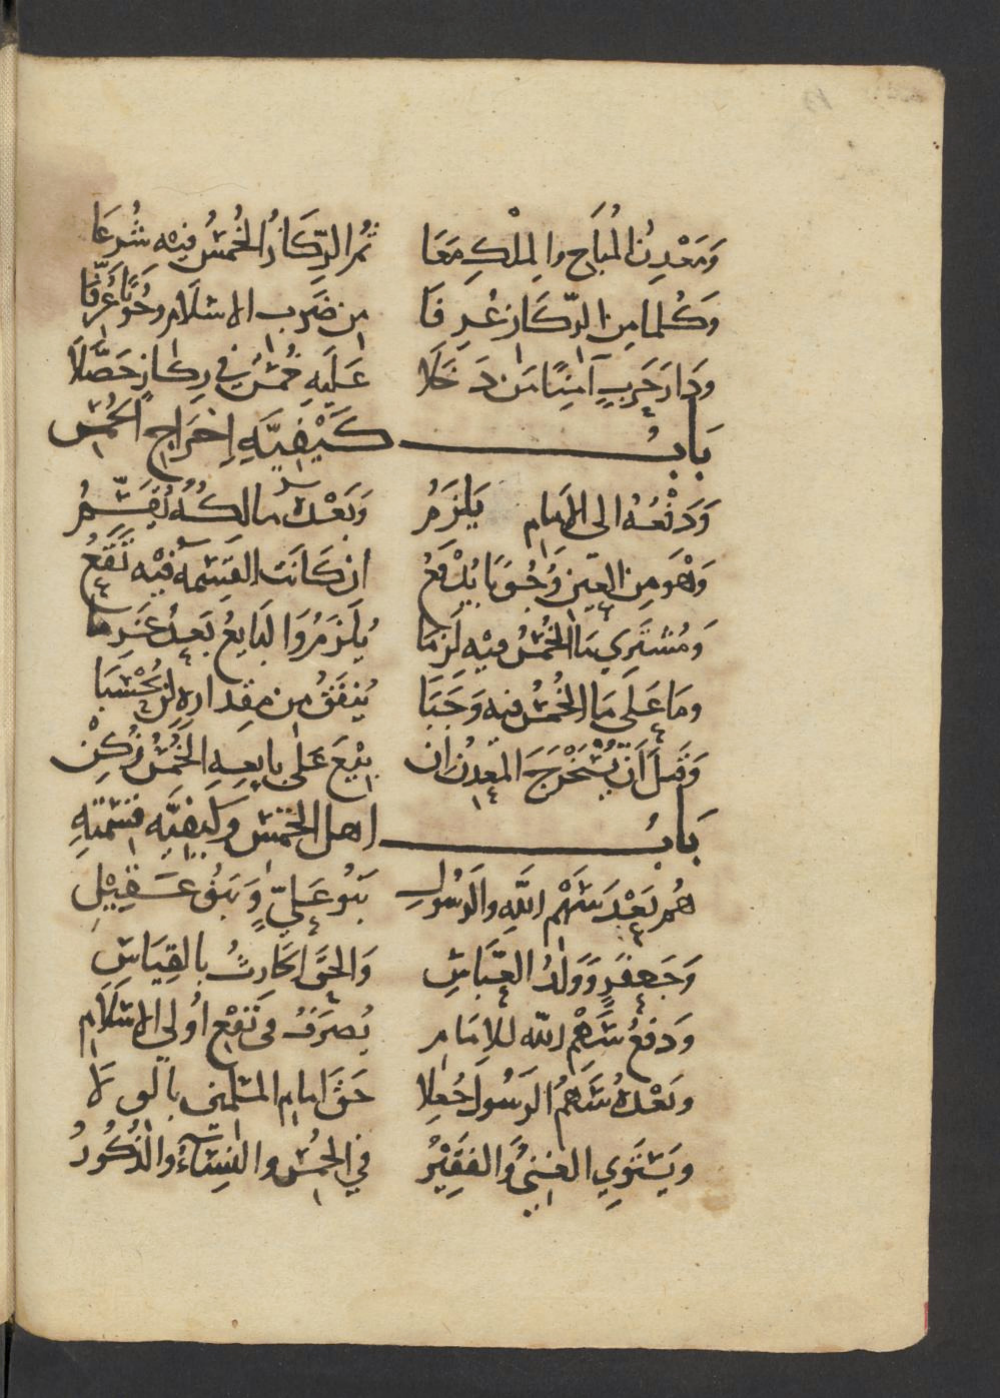 وَمَعْدِنُ المُبَاحِ والمِلْكِ مَعَا ثُمَّ الرِّكَازُ الخُمْسُ فِيْهِ شُرِعَا
وَكُلما مِن الرِّكَازِ عُرِفَا مِن ضَرْبِ الاسلَامِ وَحُرَّبًا عُرِّفَا
ودَارَ حَرْبٍ آمِنًا مَن دَخَلا عَلَيهِ خُمْسٌ في رِكازٍ حَصَّلَا
بَابُ كَيْفِيَّةِ إِخْرَاجِ الخُمْسِ
وَدَفْعُهُ الى الامَامِ يَلْزَمُ وَبَعْدَهُ مالكُهُ يُقَسِّمُ
وَهْوَ مِن العَينِ وُجُوبًا يُدْفَعُ ان كَانَت القِسْمَة فِيْه تَقَعُ
وَمُشْتَرِي مَا الخُمْسُ فِيْهِ لَزِمَا يُلزَمُ وَالبَايعُ بَعدُ غَرِمَا
ومَا عَلَى مَا الخُمْسُ فيهِ وَجَبَا يُنفَقُ مِن مِقدارِهِ لن يُحْسَبَا
وَقَبلَ أَنْ يُسْتَخْرَجَ المَعدِنُ ان بِيْعَ عَلى بايِعِهِ الخُمْسُ زُكِنْ
بَابُ اهل الخمس وكيفيّه قسمتهِ
هُم بَعْدَ سَهْمِ اللَّهِ والرَسُولِ بَنُو عَلِيٍّ وَبَنُو عَقِيْلِ
وَجَعفَرٍ وَوَلَدُ العَبَّاسِ وَالحَقُّ الحَارِثُ بالقِيَاسِ
وَدفعُ سَهْمِ اللّه للامَامِ يُصرَفُ في نَفْعِ اُولي الاسلَامِ
وبَعْدَهُ سَهمُ الرَسُولِ جُعِلا حَقَّ امامِ المسلمين بالوَلَا
ويَسْتَوِي الغَنيُّ والفَقِيْرُ في الخُمْسِ والنِسَآءُ والذُكُورُ